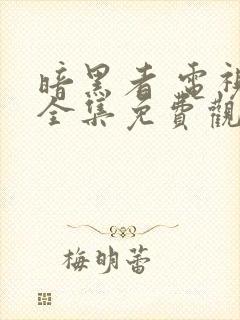 暗黑者 電視
全集免費觀
梅明蕾